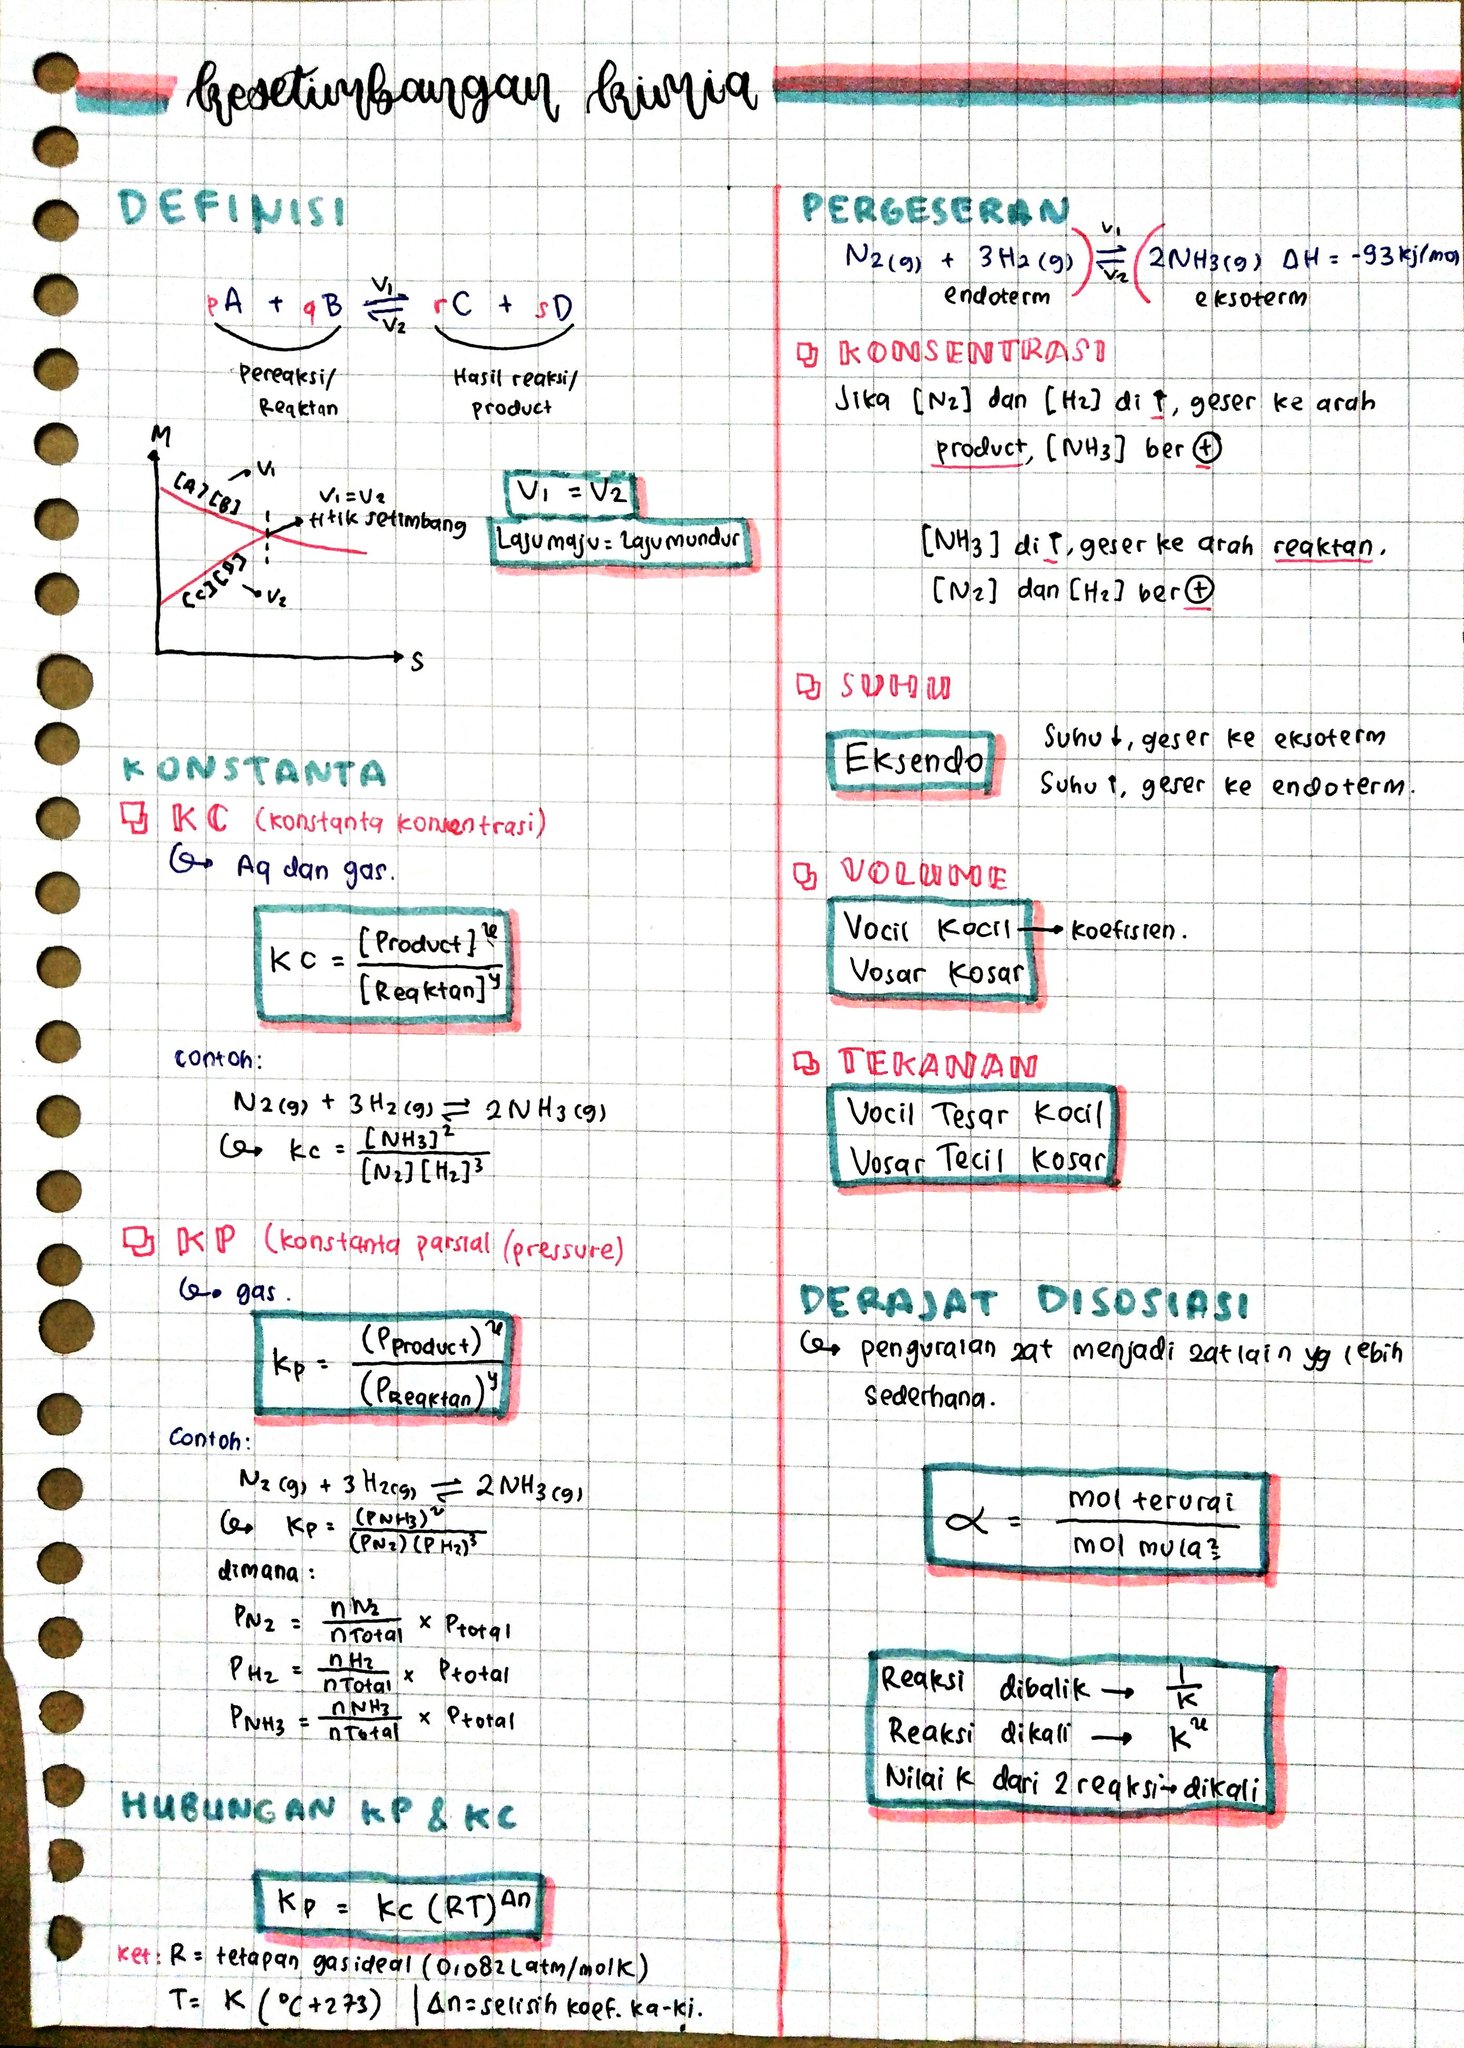 kesetimbangan kimia
DEFINISI
pA + qB ⇌ rC + sD
V1
V2
Pereaksi/
Reaktan
Hasil reaksi/
product
M
[A][B]
V1
V1 = V2
titik setimbang
[C][D]
V2
S
V1 = V2
Laju maju = Laju mundur
KONSTANTA
KC (konstanta konsentrasi)
Aq dan gas.
KC = [Product]^x / [Reaktan]^y
contoh:
N2(g) + 3H2(g) ⇌ 2NH3(g)
Kc = [NH3]^2 / [N2][H2]^3
KP (konstanta parsial (pressure)
gas.
Kp = (Pproduct)^x / (PReaktan)^y
Contoh:
N2(g) + 3H2(g) ⇌ 2NH3(g)
Kp = (PNH3)^2 / (PN2)(PH2)^3
dimana:
PN2 = nN2 / nTotal × Ptotal
PH2 = nH2 / nTotal × Ptotal
PNH3 = nNH3 / nTotal × Ptotal
HUBUNGAN KP & KC
Kp = Kc (RT)^Δn
Ket: R = tetapan gas ideal (0,082 L atm/mol K)
T = K (°C+273) | Δn = selisih koef. ka-ki.
PERGESERAN
N2(g) + 3H2(g) ⇌ 2NH3(g) ΔH = -93 kj/mol
V1
V2
endoterm
eksoterm
KONSENTRASI
Jika [N2] dan [H2] di ↑, geser ke arah
product, [NH3] ber ⊕
[NH3] di ↑, geser ke arah reaktan.
[N2] dan [H2] ber ⊕
SUHU
Eksendo
Suhu ↓, geser ke eksoterm
Suhu ↑, geser ke endoterm.
VOLUME
Vocil Kocil → koefisien.
Vosar Kosar
TEKANAN
Vocil Tesar Kocil
Vosar Tecil Kosar
DERAJAT DISOSIASI
penguraian zat menjadi zat lain yg lebih
sederhana.
α = mol terurai / mol mula2
Reaksi dibalik → 1/K
Reaksi dikali → K^x
Nilai K dari 2 reaksi → dikali